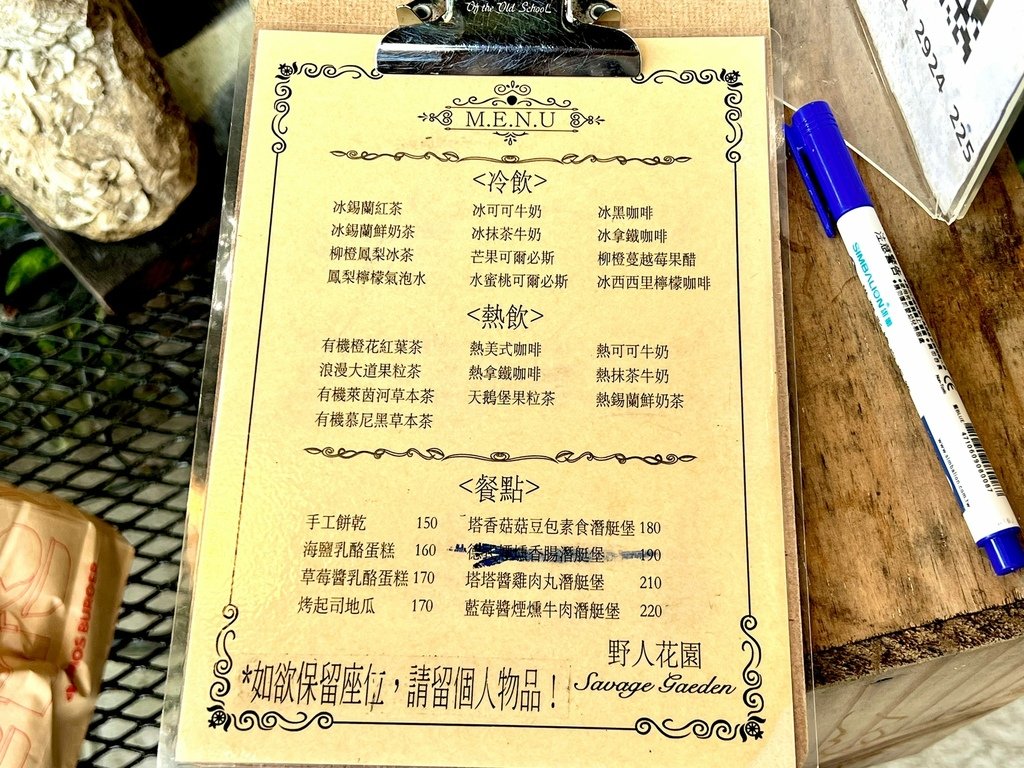 Of the Old School
M.E.N.U
<冷飲>
冰錫蘭紅茶 冰可可牛奶 冰黑咖啡
冰錫蘭鮮奶茶 冰抹茶牛奶 冰拿鐵咖啡
柳橙鳳梨冰茶 芒果可爾必斯 柳橙蔓越莓果醋
鳳梨檸檬氣泡水 水蜜桃可爾必斯 冰西西里檸檬咖啡
<熱飲>
有機橙花紅葉茶 熱美式咖啡 熱可可牛奶
浪漫大道果粒茶 熱拿鐵咖啡 熱抹茶牛奶
有機萊茵河草本茶 天鵝堡果粒茶 熱錫蘭鮮奶茶
有機慕尼黑草本茶
<餐點>
手工餅乾 150 塔香菇菇豆包素食潛艇堡 180
海鹽乳酪蛋糕 160 德 煙燻香腸潛艇堡 190
草莓醬乳酪蛋糕 170 塔塔醬雞肉丸潛艇堡 210
烤起司地瓜 170 藍莓醬煙燻牛肉潛艇堡 220
野人花園
Savage Gaeden
*如欲保留座位，請留個人物品！
2924 225
SIMBALION
MOS BURGER